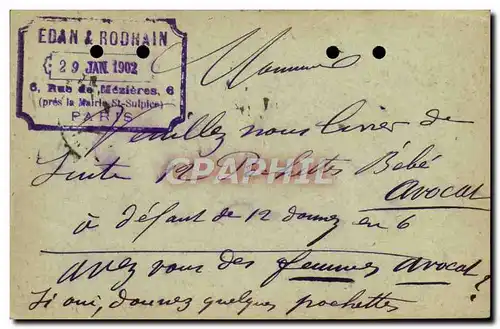 EDAN & RODHAIN
29 JAN. 1902
6, Rue de Mézières, 6
(près la Mairie St-Sulpice)
PARIS
Veuillez nous livrer de
suite 12 Pochettes Bébé
avocat
à défaut de 12 donnez en 6
avez vous des femmes avocat?
Si oui, donnez quelques pochettes
CPAPHIL.COM